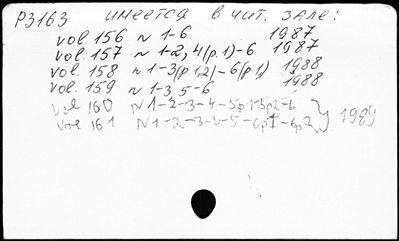 P3163 имеется в чит. зале:
vol. 156 N 1-6 1987
vol. 157 N 1-2, 4(p.1)-6 1987
vol. 158 N 1-3(p.1,2)-6(p.1) 1988
vol. 159 N 1-3, 5-6 1988
vol 160 N1-2-3-4-5p1-5p2-6
vol 161 N1-2-3-4-5-6pI-6p2 } 1989